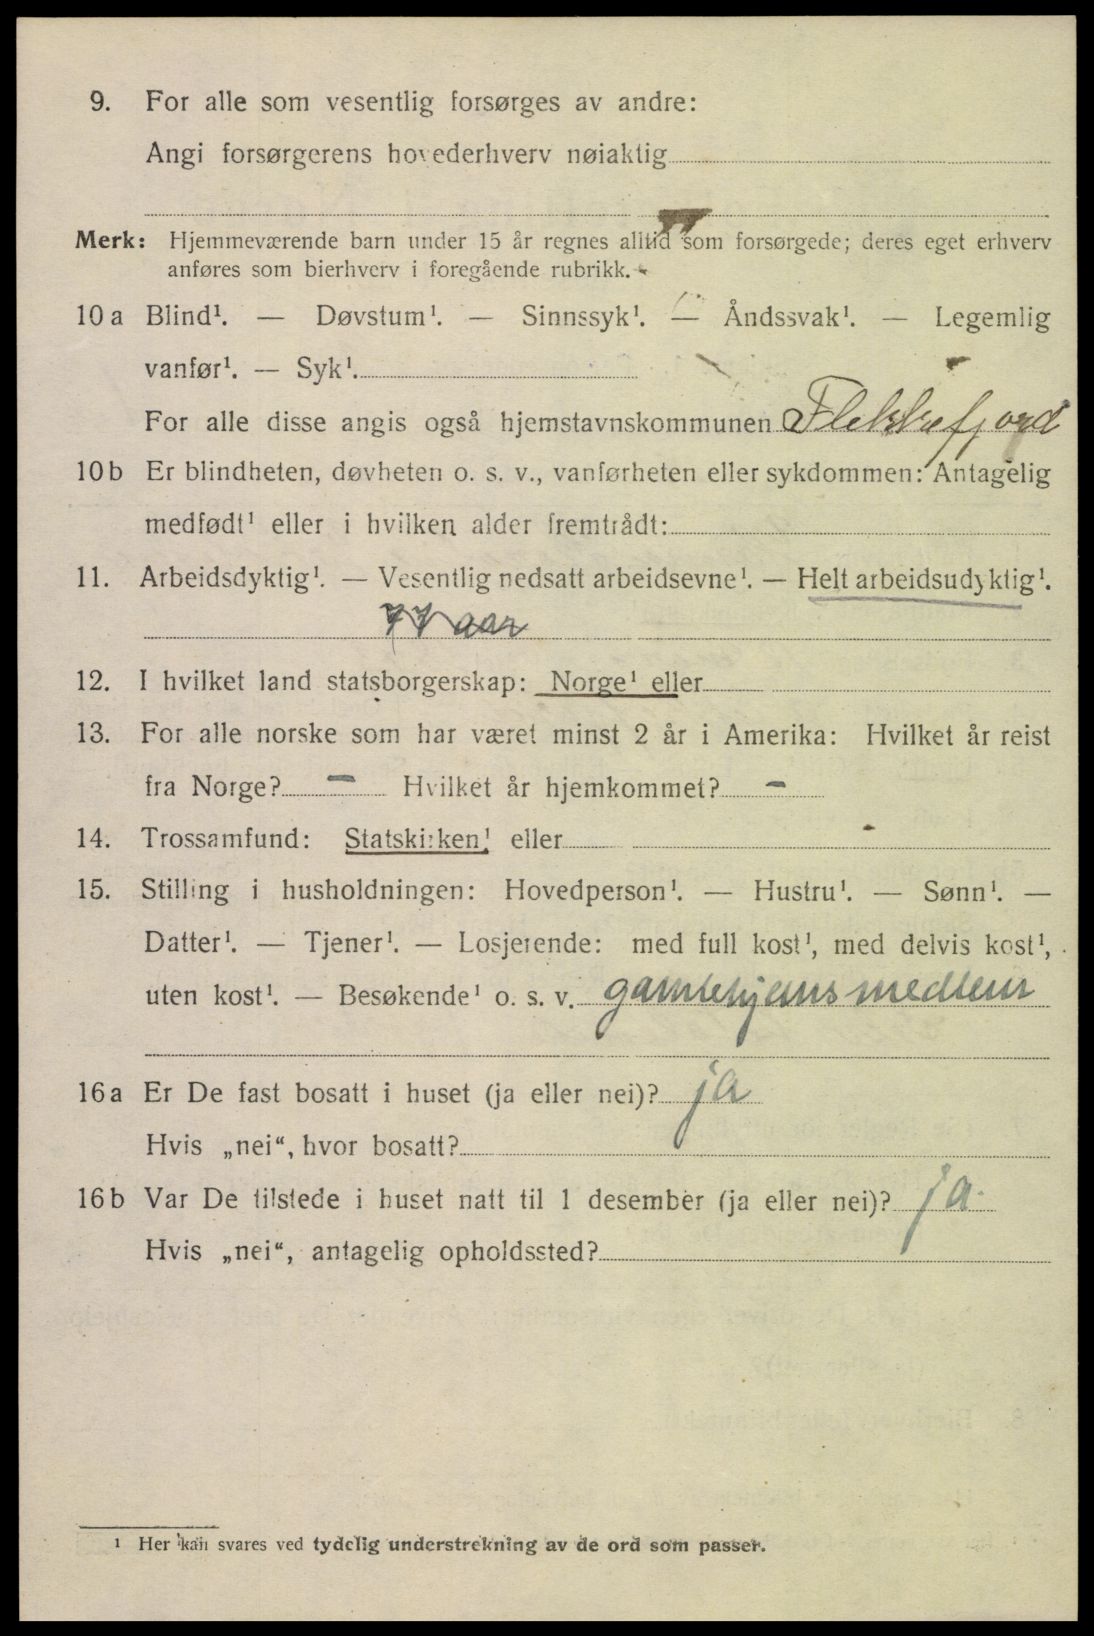 9. For alle som vesentlig forsørges av andre:
Angi forsørgerens hovederhverv nøiaktig
Merk: Hjemmeværende barn under 15 år regnes alltid som forsørgede; deres eget erhverv
anføres som bierhverv i foregående rubrikk.
10 a Blind¹. — Døvstum¹. — Sinnssyk¹. — Åndssvak¹. — Legemlig
vanfør¹. — Syk¹.
For alle disse angis også hjemstavnskommunen Flekkefjord
10 b Er blindheten, døvheten o. s. v., vanførheten eller sykdommen: Antagelig
medfødt¹ eller i hvilken alder fremtrådt:
11. Arbeidsdyktig¹. — Vesentlig nedsatt arbeidsevne¹. — Helt arbeidsudyktig¹.
77 aar
12. I hvilket land statsborgerskap: Norge¹ eller
13. For alle norske som har været minst 2 år i Amerika: Hvilket år reist
fra Norge? — Hvilket år hjemkommet? –
14. Trossamfund: Statskirken¹ eller
15. Stilling i husholdningen: Hovedperson¹. — Hustru¹. — Sønn¹. —
Datter¹. — Tjener¹. — Losjerende: med full kost¹, med delvis kost¹,
uten kost¹. — Besøkende¹ o. s. v. gamlehjemsmedlem
16 a Er De fast bosatt i huset (ja eller nei)? ja
Hvis „nei“, hvor bosatt?
16 b Var De tilstede i huset natt til 1 desember (ja eller nei)? ja
Hvis „nei“, antagelig opholdssted?
¹ Her kan svares ved tydelig understrekning av de ord som passer.